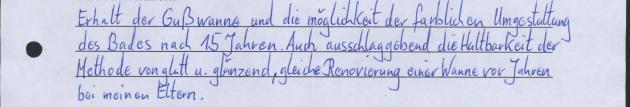 Erhalt der Gußwanne und die möglichkeit der farblichen Umgestaltung
des Bades nach 15 Jahren. Auch ausschlaggebend die Haltbarkeit der
Methode von glatt u. glänzend, gleiche Renovierung einer Wanne vor Jahren
bei meinen Eltern.